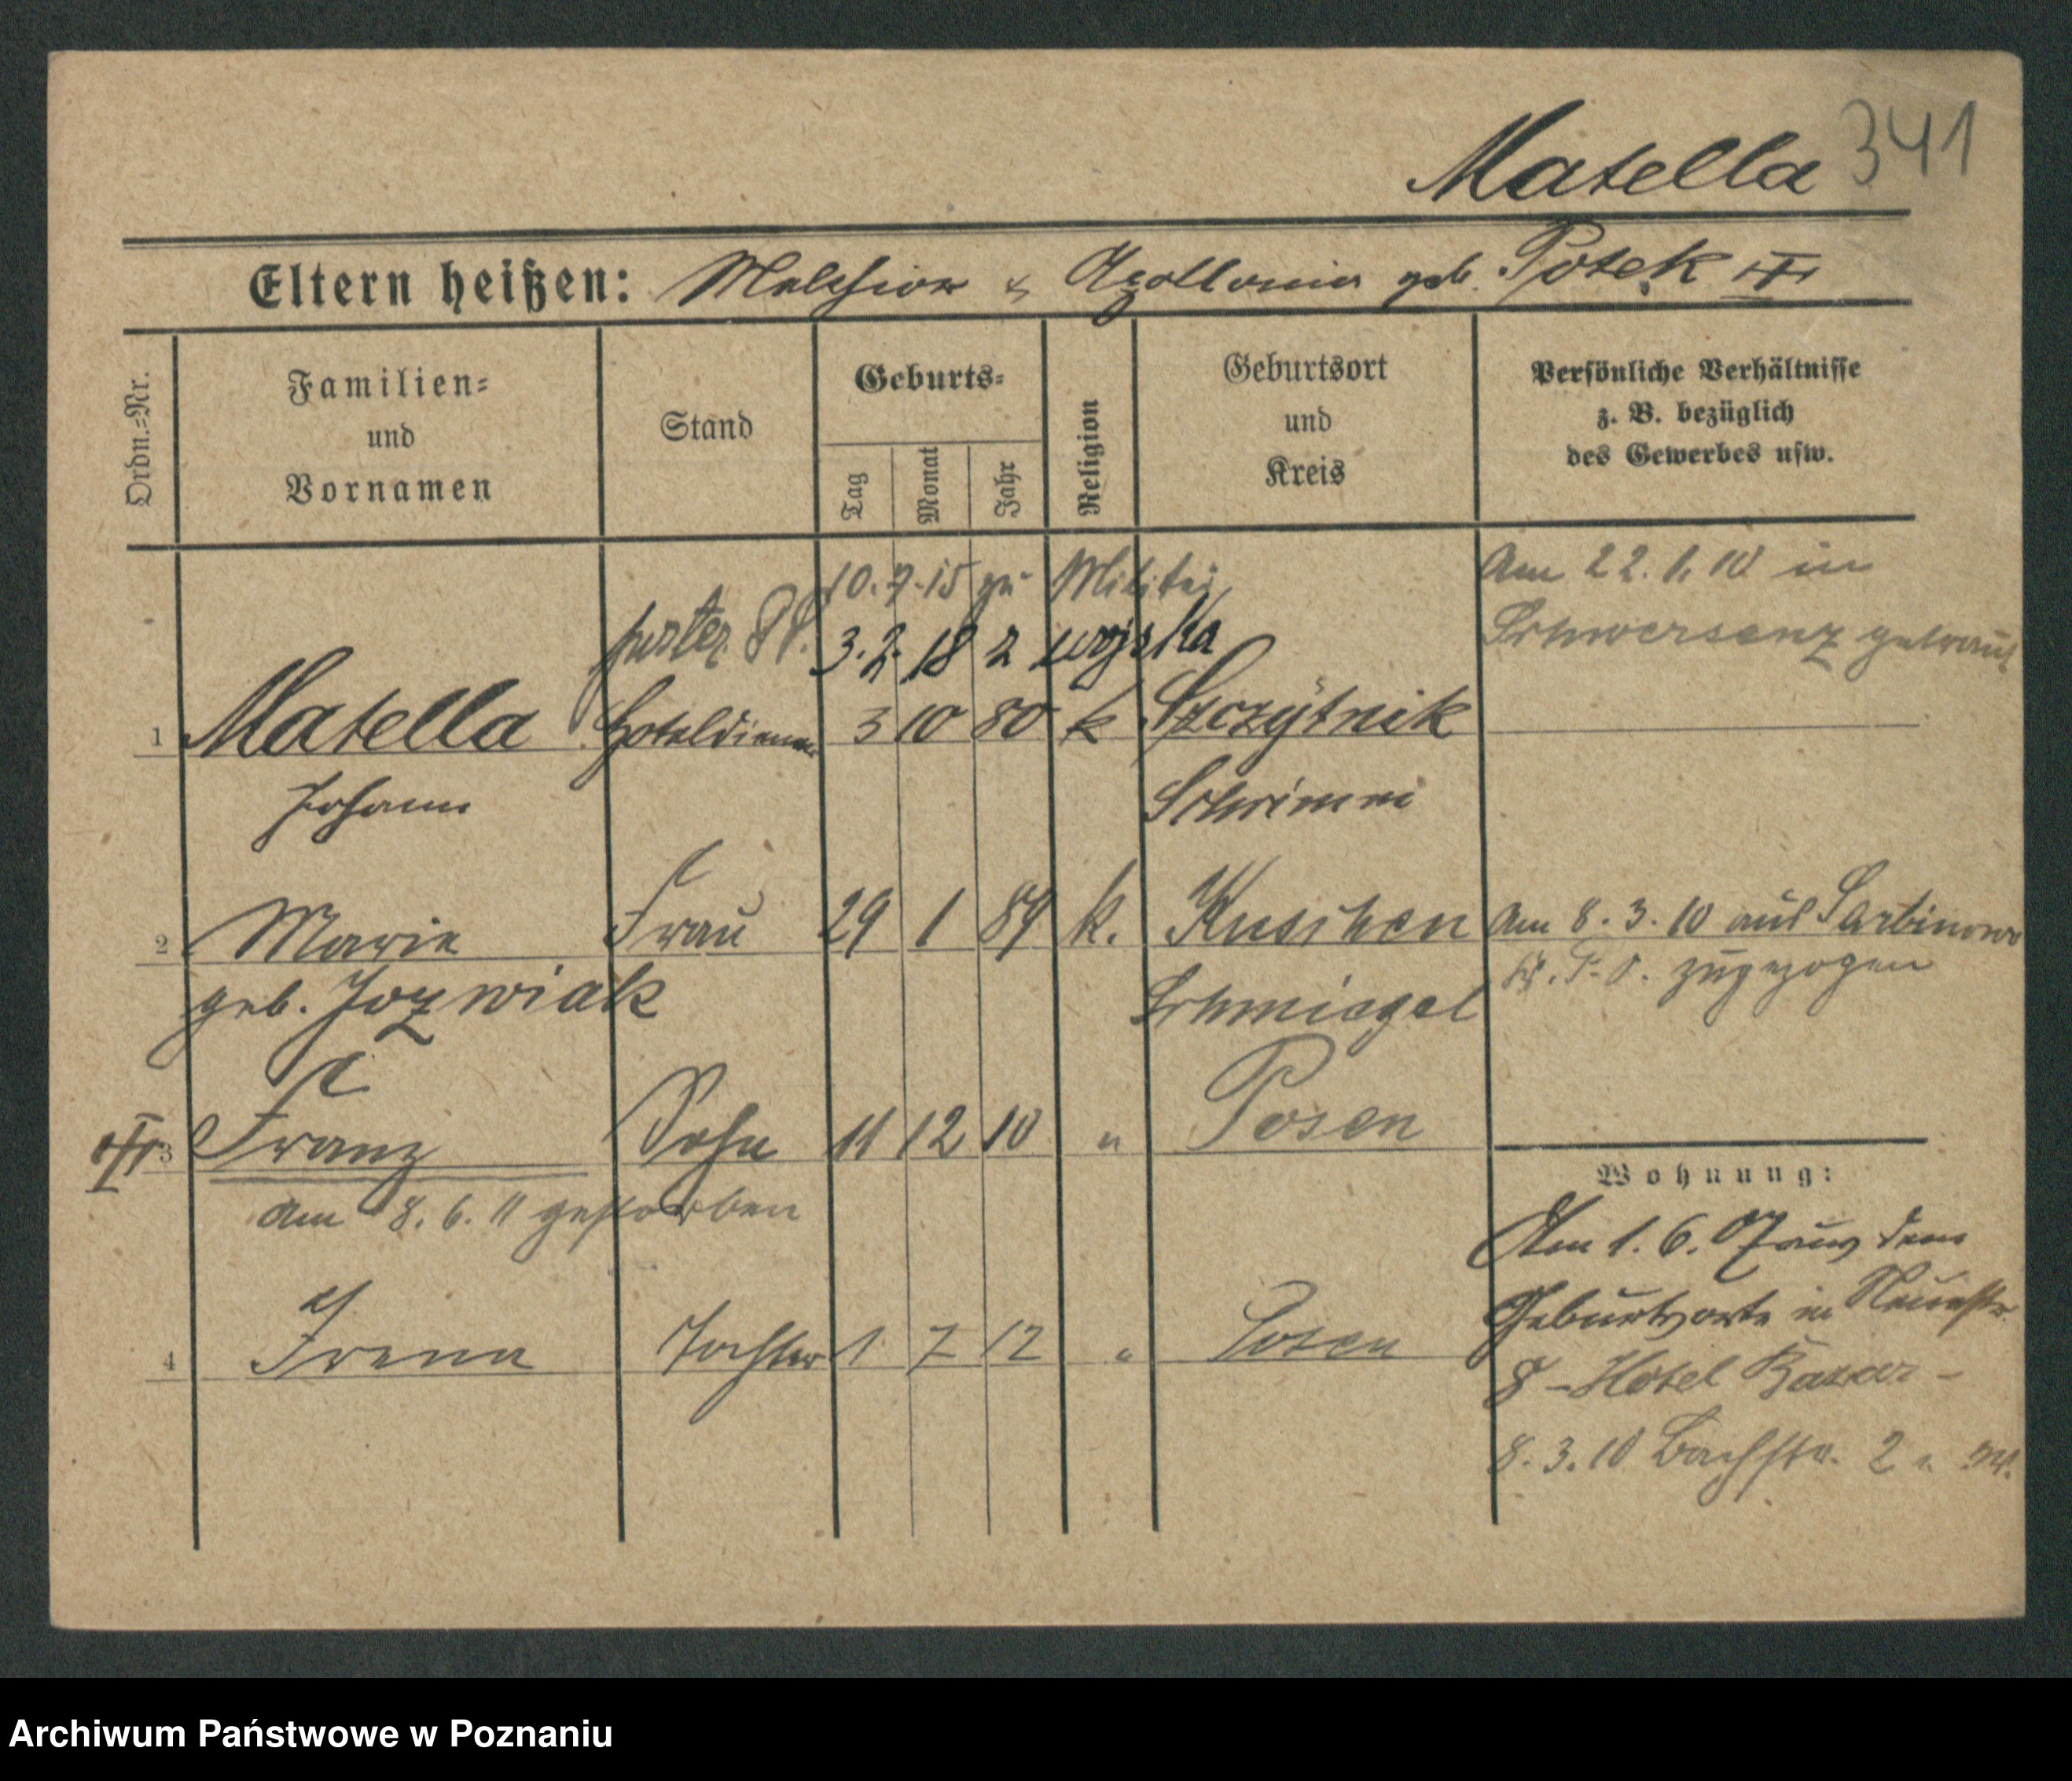 Matella 341
Eltern heißen: Melchior & Apollonia geb. Potek
Ordn.=Nr.
Familien=
und
Vornamen
Stand
Geburts=
Tag
Monat
Jahr
Religion
Geburtsort
und
Kreis
Persönliche Verhältnisse
z. B. bezüglich
des Gewerbes usw.
10. 7. 15 zu Militär
3. 2. 18 z wojska
Am 22. 1. 10 in
Schwersenz getraut
1 Matella Hoteldiener 3 10 80 k Szczytnik
Johann Schrimm
2 Marie Frau 29 1 84 k. Kuschen Am 8. 3. 10 aus Sarbinowo
geb. Jozwiak Schmiegel zugezogen
3 Franz Sohn 11 12 10 " Posen
am 8. 6. 11 gestorben
4 Irena Tochter 1 7 12 " Posen
Wohnung:
Am 1. 6. 07 aus dem
Geburtsorte in Neuestr.
8 - Hôtel Bazar -
8. 3. 10 Bachstr. 2
Archiwum Państwowe w Poznaniu